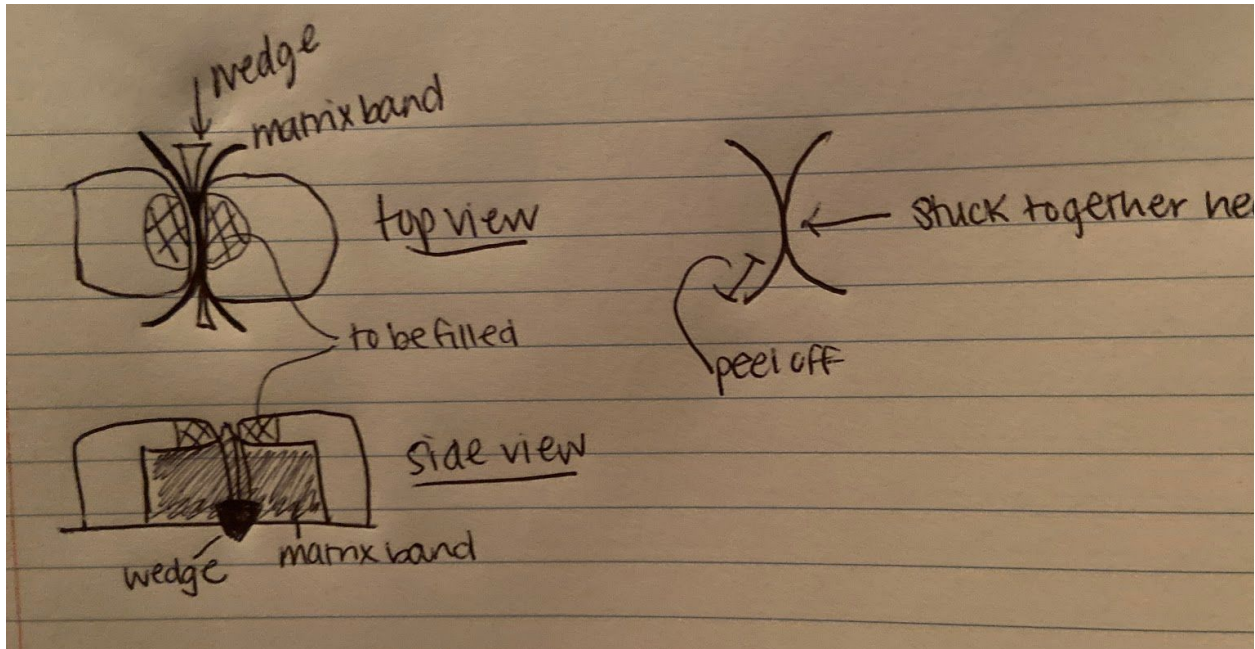 wedge
matrix band
top view
stuck together he
to be filled
peel off
side view
wedge
matrix band